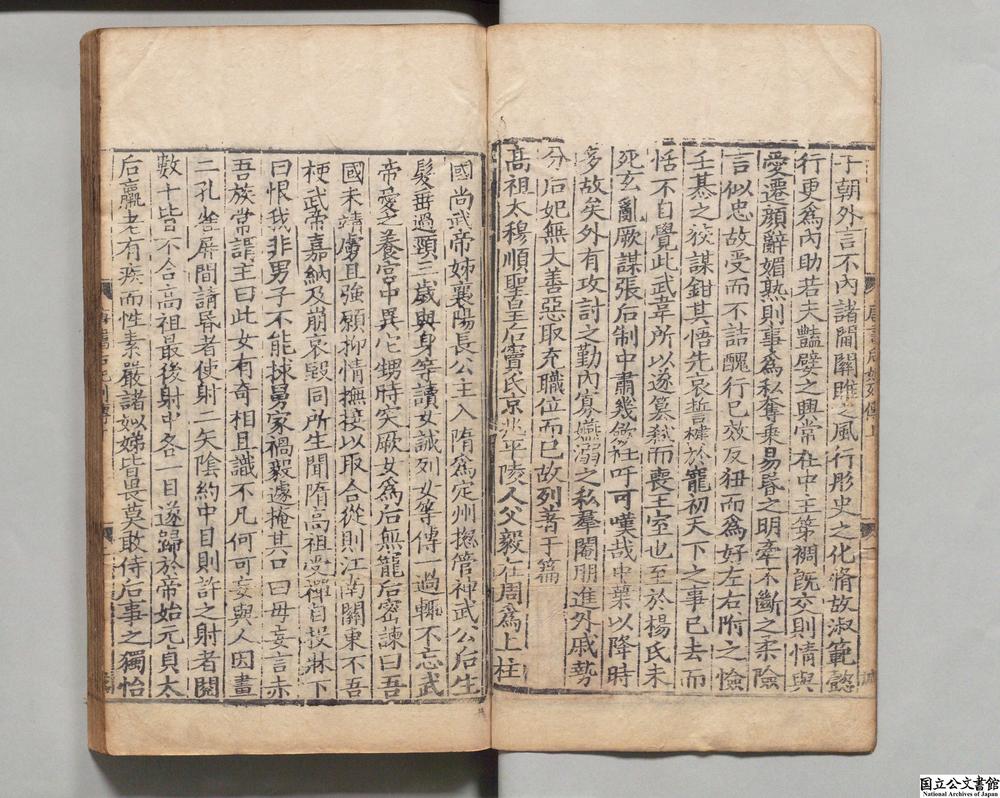 于朝外言不內諸閫關雎之風行彤史之化脩故淑範懿
行更爲內助若夫艷嬖之興常在中主第裯旣交則情與
愛遷顏辭媚熟則事爲私奪乘易昬之明牽不斷之柔險
言似忠故受而不詰醜行已效反狃而爲好左右附之憸
壬惎之狡謀鉗其悟先哀誓楗於寵初天下之事已去而
恬不自覺此武韋所以遂簒弑而喪王室也至於楊氏未
死玄亂厥謀張后制中肅幾斂衽吁可嘆哉中葉以降時
多故矣外有攻討之勤內寡嬿溺之私羣閹朋進外戚勢
分后妃無大善惡取充職位而已故列著于篇
高祖太穆順聖皇后竇氏京兆平陵人父毅在周爲上柱
國尚武帝姊襄陽長公主入隋爲定州揔管神武公后生
髮垂過頸三歲與身等讀女誡列女等傳一過輒不忘武
帝愛之養宮中異它甥時突厥女爲后無寵后密諫曰吾
國未靖虜且強願抑情撫接以取合從則江南關東不吾
梗武帝嘉納及崩哀毀同所生聞隋高祖受禪自投牀下
曰恨我非男子不能捄舅家禍毅遽掩其口曰毋妄言赤
吾族常謂主曰此女有奇相且識不凡何可妄與人因畫
二孔雀屏間請昏者使射二矢陰約中目則許之射者閱
數十皆不合高祖最後射中各一目遂歸於帝始元貞太
后羸老有疾而性素嚴諸姒娣皆畏莫敢侍后事之獨怡
唐書后妃列傳上
国立公文書館
National Archives of Japan